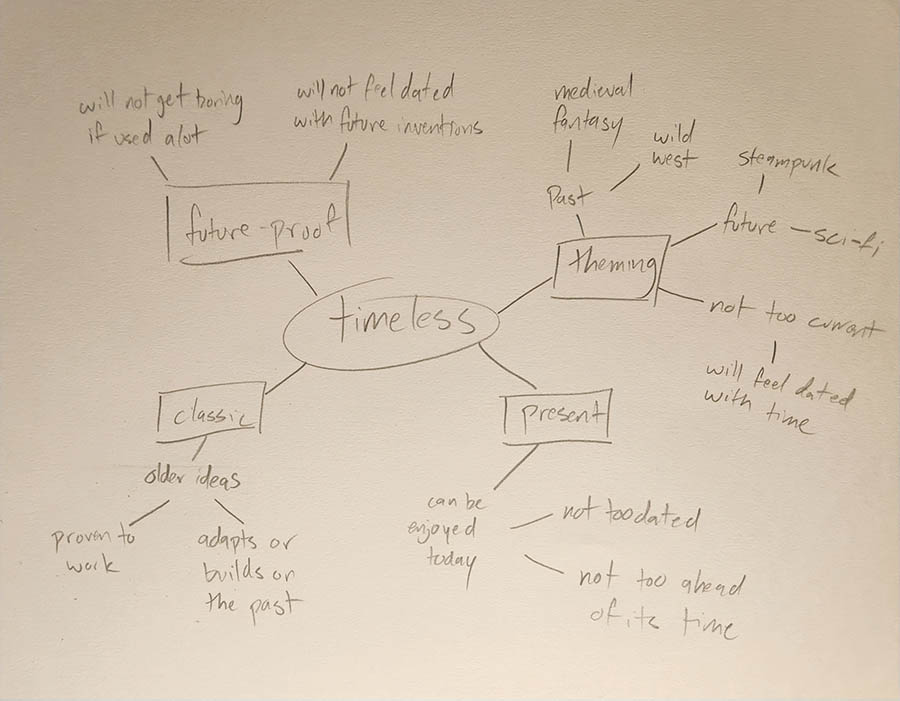 will not get boring
if used alot
will not feel dated
with future inventions
future-proof
medieval
fantasy
wild
west
Past
steampunk
future
sci-fi
theming
not too currant
will feel dated
with time
timeless
classic
older ideas
proven to
work
adapts or
builds on
the past
present
can be
enjoyed
today
not too dated
not too ahead
of its time